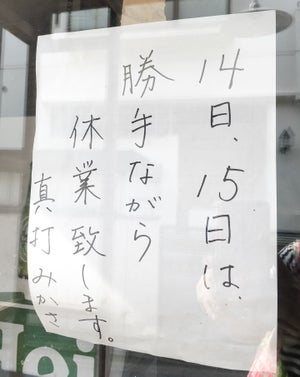 14日、15日は、
勝手ながら
休業致します。
真打みかさ